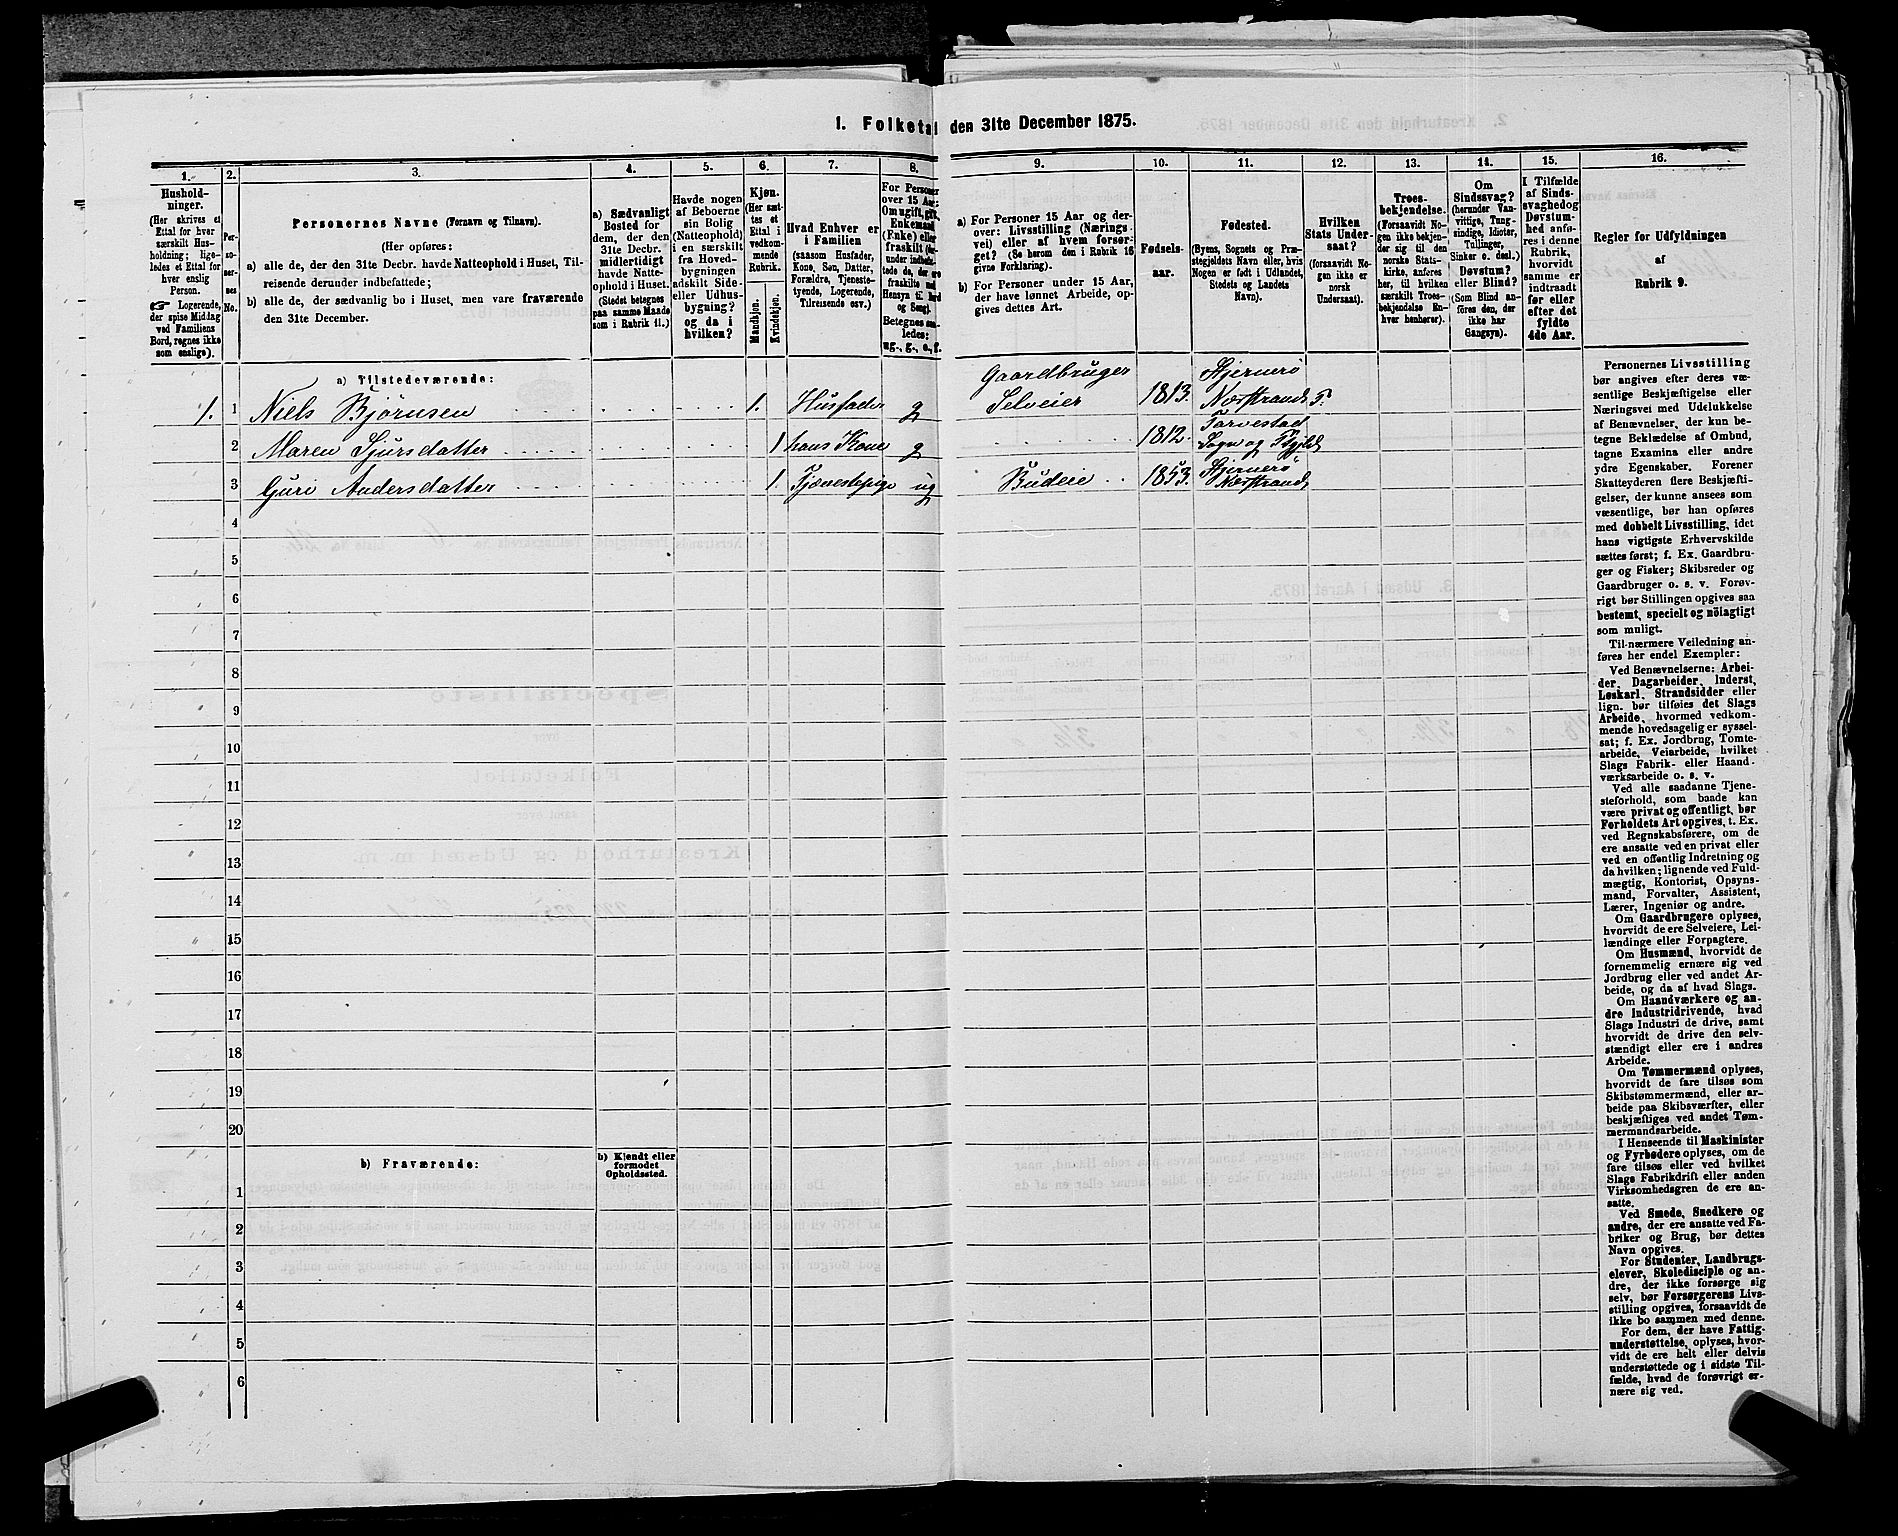 1. Folketal den 31te December 1875.
1. 2. 3. 4. 5. 6. 7. 8. 9. 10. 11. 12. 13. 14. 15. 16.
Hushold-
ninger.
(Her skrives et
Ettal for hver
særskilt Hus-
holdning; lige-
ledes et Ettal for
hver enslig
Person.
☞ Logerende,
der spise Middag
ved Familiens
Bord, regnes ikke
som enslige).
Per-
so-
ner-
nes
No.
Personernes Navne (Fornavn og Tilnavn).
(Her opføres:
a) alle de, der den 31te Decbr. havde Natteophold i Huset, Til-
reisende derunder indbefattede;
b) alle de, der sædvanlig bo i Huset, men vare fraværende
den 31te December.
a) Sædvanligt
Bosted for
dem, der den
31te Decbr.
midlertidigt
havde Natte-
ophold i Huset.
(Stedet betegnes
paa samme Maade
som i Rubrik 11.)
Havde nogen
af Beboerne
sin Bolig
(Natteophold)
i en særskilt
fra Hoved-
bygningen
adskilt Side-
eller Udhus-
bygning?
og da i
hvilken?
Kjøn.
(Her sæt-
tes et
Ettal i
vedkom-
mende
Rubrik.
Mandkjøn.
Kvindekjøn.
Hvad Enhver er
i Familien
(saasom Husfader,
Kone, Søn, Datter,
Forældre, Tjeneste-
tyende, Logerende,
Tilreisende osv.)
For Personer
over 15 Aar:
Om ugift, gift,
Enkemand
(Enke) eller
fraskilt
Betegnes saa-
ledes:
ug., g., e., f.
a) For Personer 15 Aar og der-
over: Livsstilling (Nærings-
vei) eller af hvem forsør-
get? (Se herom den i Rubrik 16
givne Forklaring).
b) For Personer under 15 Aar,
der have lønnet Arbeide, op-
gives dettes Art.
Fødsels-
aar.
Fødested.
(Byens, Sognets og Præ-
stegjeldets Navn eller, hvis
Nogen er født i Udlandet,
Stedets og Landets
Navn).
Hvilken
Stats Under-
saat?
(forsaavidt No-
gen ikke er
norsk
Undersaat).
Troes-
bekjendelse.
(Forsaavidt No-
gen ikke bekjen-
der sig til den
norske Stats-
kirke, anføres
her, til hvilken
særskilt Troes-
bekjendelse En-
hver henhører).
Om
Sindssvag?
(herunder Van-
vittige, Tung-
sindige, Idioter,
Tullinger,
Sinker o. desl.)
Døvstum?
eller Blind?
(Som Blind an-
føres den, der
ikke har
Gangsyn).
I Tilfælde
af Sinds-
svaghed og
Døvstum-
hed anfø-
res i denne
Rubrik,
hvorvidt
samme er
indtraadt
før eller
efter det
fyldte
4de Aar.
Regler for Udfyldningen
af
Rubrik 9.
a) Tilstedeværende:
1. 1 Niels Bjørnsen 1. Husfader g Gaardbruger Selveier 1813. Hjernerø Nærstrands P.
2 Maren Sjursdatter 1 hans Kone g 1812. Torvestad Sogn og Pgjeld
3 Guri Andersdatter 1 Tjenestepige ug Budeie 1853. Hjernerø Nærstrands
4
5
6
7
8
9
10
11
12
13
14
15
16
17
18
19
20
b) Fraværende:
b) Kjendt eller
formodet
Opholdssted.
1
2
3
4
5
6
Personernes Livsstilling
bør angives efter deres væ-
sentlige Beskjæftigelse eller
Næringsvei med Udelukkelse
af Benævnelser, der kun be-
tegne Beklædelse af Ombud,
tagne Examina eller andre
ydre Egenskaber. Forener
Skatteyderen flere Beskjæfti-
gelser, der kunne ansees som
væsentlige, bør han opføres
med dobbelt Livsstilling, idet
hans vigtigste Erhvervskilde
sættes først; f. Ex. Gaardbru-
ger og Fisker; Skibsreder og
Gaardbruger o. s. v. Forøv-
rigt bør Stillingen opgives saa
bestemt, specielt og nöiagtigt
som muligt.
Til nærmere Veiledning an-
føres her endel Exempler:
Ved Benævnelserne: Arbei-
der, Dagarbeider, Inderst,
Løskarl, Strandsidder eller
lign. bør tilføies det Slags
Arbeide, hvormed vedkom-
mende hovedsagelig er syssel-
sat; f. Ex. Jordbrug, Tomte-
arbeide, Veiarbeide, hvilket
Slags Fabrik- eller Haand-
værksarbeide o. s. v.
Ved alle saadanne Tjene-
steforhold, som baade kan
være privat og offentligt, bør
Forholdets Art opgives, t. Ex.
ved Regnskabsførere, om de
ere ansatte ved en privat eller
ved en offentlig Indretning og
da hvilken; lignende ved Fuld-
mægtig, Kontorist, Opsyns-
mand, Forvalter, Assistent,
Lærer, Ingeniør og andre.
Om Gaardbrugere oplyses,
hvorvidt de ere Selveiere, Lei-
lændinge eller Forpagtere.
Om Husmænd, hvorvidt de
fornemmelig ernære sig ved
Jordbrug eller ved andet Ar-
beide, og da af hvad Slags.
Om Haandværkere og an-
dre Industridrivende, hvad
Slags Industri de drive, samt
hvorvidt de drive den selv-
stændigt eller ere i andres
Arbeide.
Om Tømmermænd oplyses,
hvorvidt de fare tilsøs som
Skibstømmermænd, eller ar-
beide paa Skibsværfter, eller
beskjæftiges ved andet Tøm-
mermandsarbeide.
I Henseende til Maskinister
og Fyrbødere oplyses, om de
fare tilsøs eller ved hvilket
Slags Fabrikdrift eller anden
Virksomhedsgren de ere an-
satte.
Ved Smede, Snedkere og
andre, der ere ansatte ved Fa-
briker og Brug, bør dettes
Navn opgives.
For Studenter, Landbrugs-
elever, Skoledisciple og an-
dre, der ikke forsørge sig
selv, bør Forsørgerens Livs-
stilling opgives, forsaavidt de
ikke bo sammen med denne.
For dem, der have Fattig-
understøttelse, oplyses, hvor-
vidt de ere helt eller delvis
understøttede og i sidste Til-
fælde, hvad de forøvrigt er-
nære sig ved.